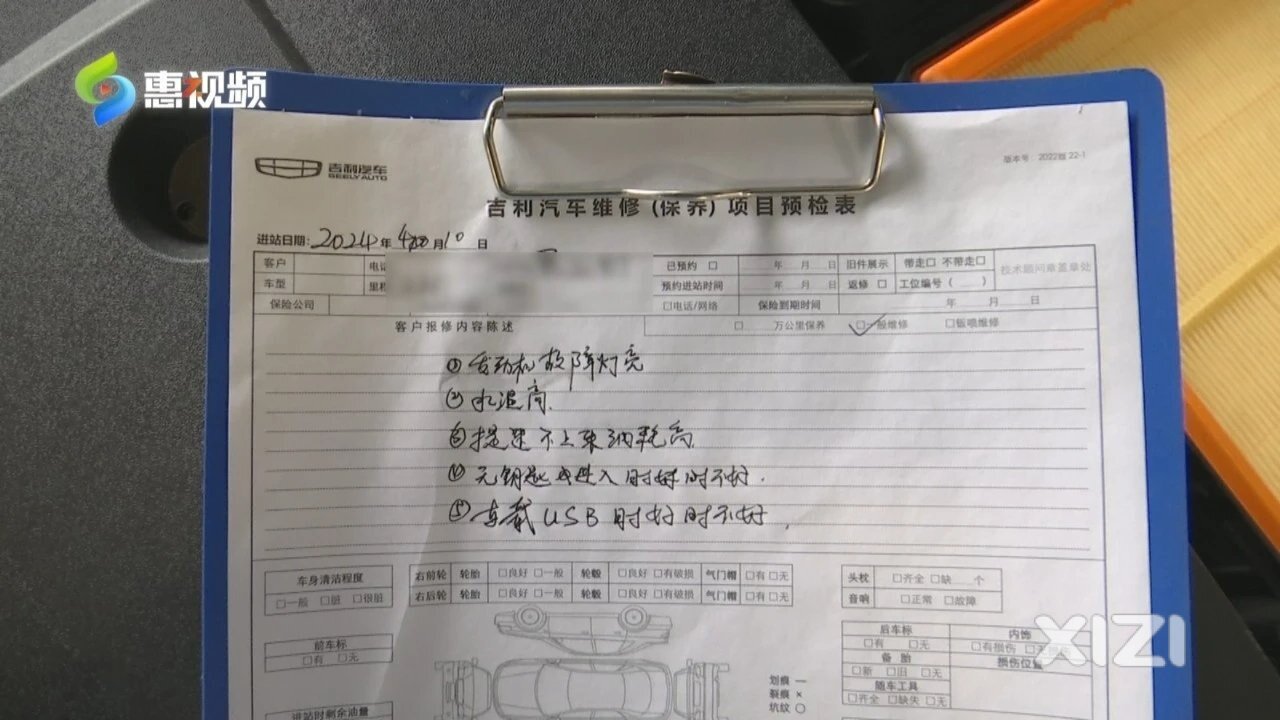 惠视频
吉利汽车
GEELY AUTO
版本号：2022版 22-1
吉利汽车维修(保养)项目预检表
进站日期：2024年4月10日
客户 电话 已预约 □ 年 月 日 旧件展示 带走□ 不带走□ 技术顾问章盖章处
车型 里程 预约进站时间 年 月 日 返修 □ 工位编号（ ）
保险公司 □电话/网络 保险到期时间 年 月 日
客户报修内容陈述 □ 万公里保养 □一般维修 □钣喷维修
①发动机故障灯亮
②水温高.
③提速不上来油耗高
④无钥匙进入时好时不好.
⑤车载USB时好时不好,
车身清洁程度
□一般 □脏 □很脏
右前轮 轮胎 □良好 □一般 轮毂 □良好 □有破损 气门帽 □有 □无
右后轮 轮胎 □良好 □一般 轮毂 □良好 □有破损 气门帽 □有 □无
头枕 □齐全 □缺 个
音响 □正常 □故障
前车标
□有 □无
后车标
□有 □无
备胎
□新 □旧 □无
随车工具
□齐全 □缺失 □无
内饰
□有损伤
损伤位置
划痕 —
裂痕 ×
坑纹 ○
进站时剩余油量
XIZI